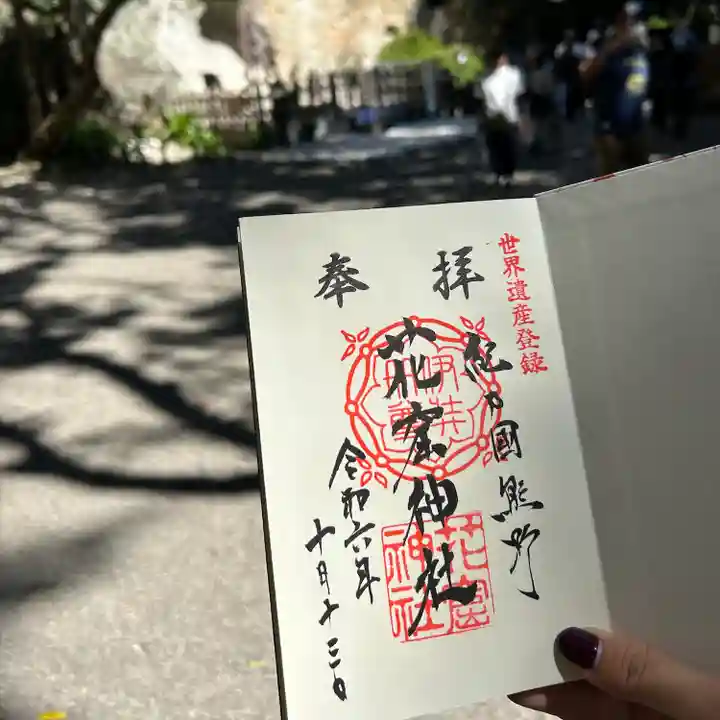 世界遺産登録
奉拝
紀の國熊野
花窟神社
令和六年
十月十三日
花窟神社